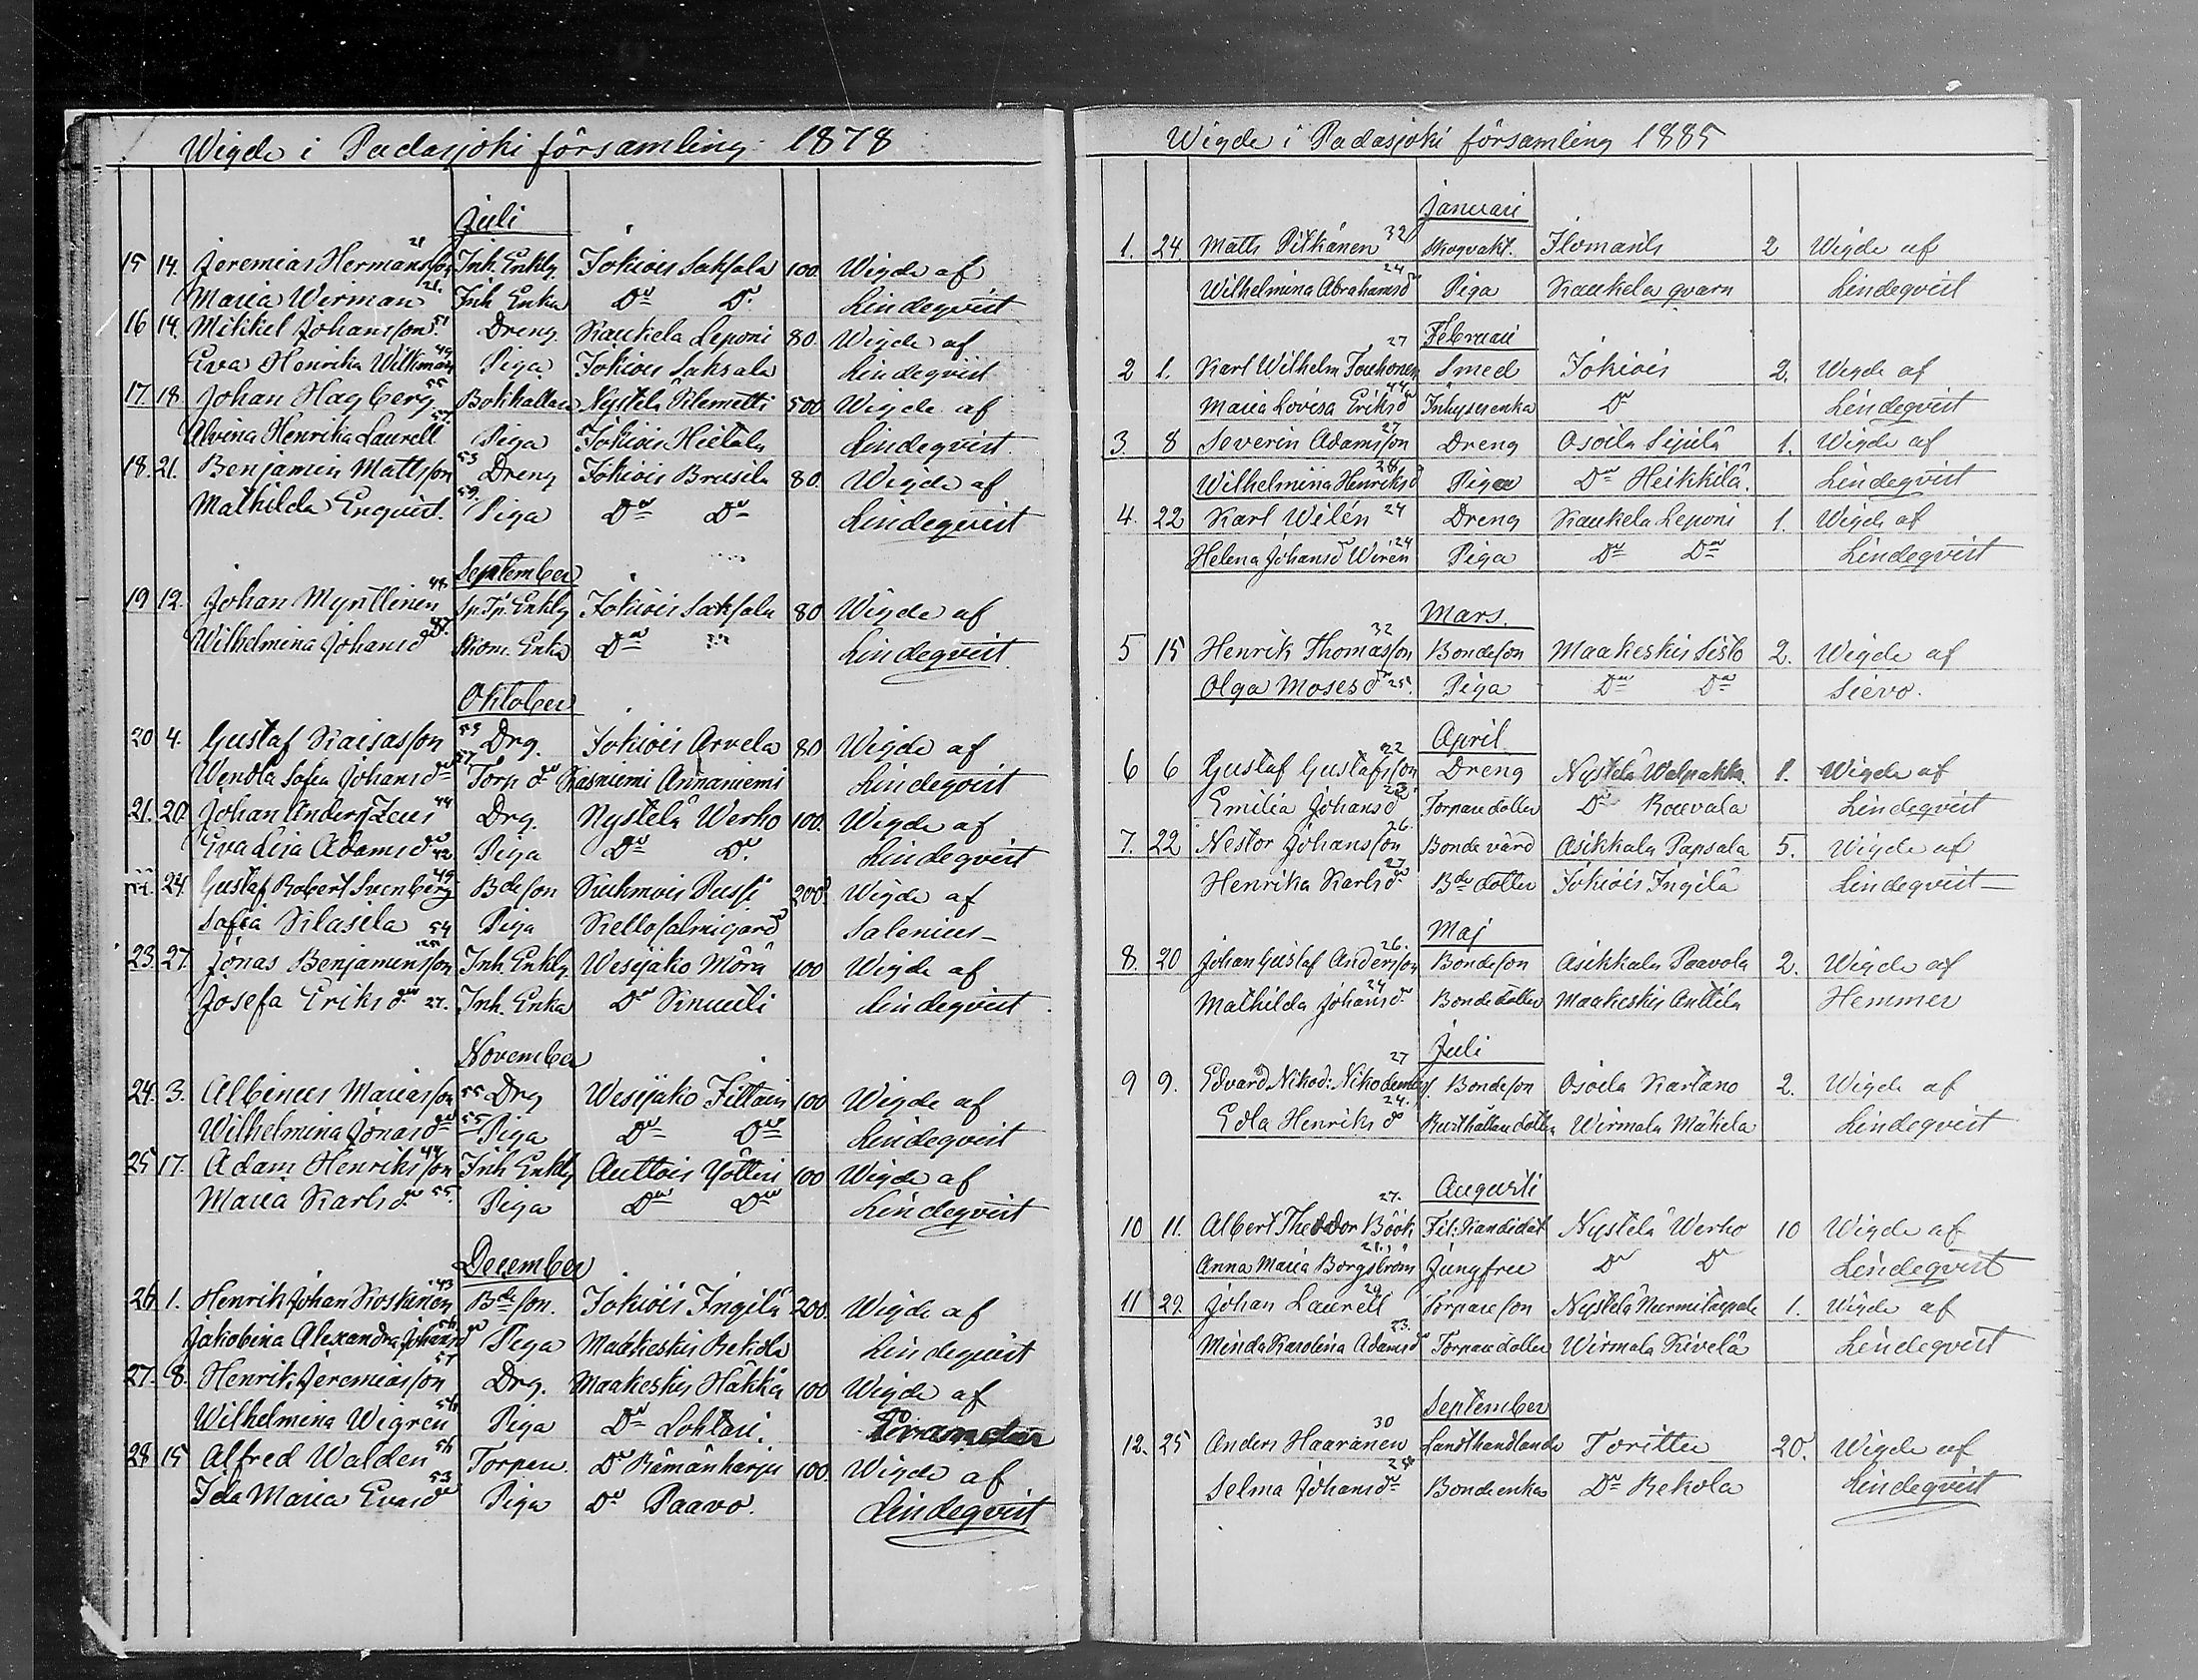 Wigde i Padasjoki församling 1878
Juli
15 14. Jeremias Hermansson 21 Inh. Enkling Jokiois Saksala 100. Wigde af
Maria Wirman 21. Inh Enka Do Do Lindeqvist
16 14. Mikkel Johansson 51 Dreng Kaukela Leponi 80. Wigde af
Eva Henrika Wilkman 49 Piga Jokiois Saksala Lindeqvist
17. 18. Johan Hagberg 55 Bokhållare Nystelä Klemetti 500 Wigde af
Alvina Henrika Laurell Piga Jokiois Hietala Lindeqvist.
18. 21. Benjamin Mattsson 53 Dreng Jokiois Brusila 80. Wigde af
Mathilda Enqvist. 59. Piga Do Do Lindeqvist
September
19 12. Johan Mynttinen 48 Sp.Tp. Enkling Jokiois Saksala 80 Wigde af
Wilhelmina Johansdr Skom. Enka Do Lindeqvist.
Oktober
20 4. Gustaf Kaisasson 59 Drg. Jokiois Arvela 80 Wigde af
Wendla Sofia Johansdr 57 Torp dr Kasniemi Annaniemi Lindeqvist
21. 20. Johan Anders Zeus 44 Drg. Nystelä Werho 100. Wigde af
Eva Lisa Adamsdr 42 Piga Do Do. Lindeqvist
22. 24. Gustaf Robert Svenberg 49 Bdeson Kuhmois Pussi 200. Wigde af
Sofia Klasila 54 Piga Kellosalmigård Salenius
23. 27. Jonas Benjaminsson 25 Inh. Enklg. Wesijako Mörä 100 Wigde af
Josefa Eriksdr 27. Inh. Enka Do Knuuti Lindeqvist
November
24. 3. Albinus Mariasson 55 Drg Wesijako Tiltain 100 Wigde af
Wilhelmina Jonasdr 55 Piga Do Do Lindeqvist
25 17. Adam Henriksson 44 Inh Enklg Auttois Yöttiri 100 Wigde af
Maria Karlsdr 55. Piga Do Do Lindeqvist
December
26. 1. Henrik Johan Koskinen 43 Bdeson. Jokiois Ingilä 200. Wigde af
Jakobina Alexandra Johansdr Piga Maakeskis Rekola Lindeqvist
27. 8. Henrik Jeremiasson 57 Drg. Maakeskis Häkkä 100 Wigde af
Wilhelmina Wigren 56 Piga Do Lohtari.
28 15 Alfred Walden 56 Torpare. Do Rämänharju 100. Wigde af
Ida Maria Evasdr 53 Piga Do Paavo. Lindeqvist
Wigde i Padasjoki församling 1885
Januari
1. 24. Matts Pitkänen 32 Skogvakt. Ilomants 2 Wigde af
Wilhelmina Abrahamsdr 24 Piga Kaukela qvarn Lindeqvist
Februari
2 1. Karl Wilhelm Touhonen 27 Smed Jokiois 2. Wigde af
Maria Lovisa Eriksdr 44 Inhysesenka Do Lindeqvist
3. 8 Severin Adamsson 27 Dreng Osoila Sipilä 1. Wigde af
Wilhelmina Henriksdr 28 Piga Do Heikkilä. Lindeqvist
4. 22 Karl Wilén 24 Dreng Kaukela Leponi 1. Wigde af
Helena Johansdr Wirén 24 Piga Do Do Lindeqvist
Mars.
5 15 Henrik Thomasson 32 Bondeson Maakeskis Sisto 2. Wigde af
Olga Mosesdr 25. Piga Do Do Sievo.
April
6 6 Gustaf Gustafsson 22 Dreng Nystelä Walpakka 1. Wigde af
Emilia Johansdr 23 Torparedotter Do Rouvala Lindeqvist
7. 22 Nestor Johansson 26. Bondevärd Asikkala Papsala 5. Wigde af
Henrika Karlsdr 27 Bde dotter Jokiois Ingilä Lindeqvist
Maj
8. 20 Johan Gustaf Andersson 26. Bondeson Asikkala Paavola 2. Wigde af
Mathilda Johansdr 24 Bondedotter Maakeskis Anttila Hemmer
Juli
9 9. Edvard Nikod: Nikodemuss. 27 Bondeson Osoila Kartano 2. Wigde af
Edla Henriksdr 24. Rusthållaredotter Wirmala Mäkelä Lindeqvist
Augusti
10 11. Albert Theodor Böök 27. Fil: Kandidat Nystelä Werho 10 Wigde af
Anna Maria Borgström 21. Jungfru Do Do Lindeqvist
11 29. Johan Laurell 29 Torpareson Nystelä Nurmitaipale 1. Wigde af
Minda Karolina Adamsdr 23. Torparedotter Wirmala Kivelä Lindeqvist
September
12. 25 Anders Haaranen 30 Landthandlande Toritta 20. Wigde af
Selma Johansdr Bondeenka Do Rekola Lindeqvist